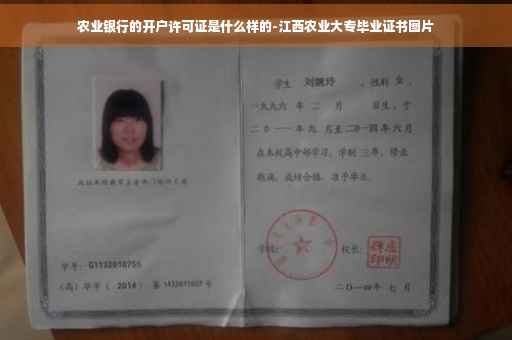 农业银行的开户许可证是什么样的-江西农业大专毕业证书图片
学生 刘婉玲 ,性别 女 ,
一九九六 年 二 月 日生,于
二〇一一年九 月至二〇一四年六月
在本校高中部学习,学制 三年,修业
期满,成绩合格,准予毕业。
学号: G1132010755
(高)毕字( 2014 )第 1432011027 号
学校: 校长:
二〇一四年 七 月